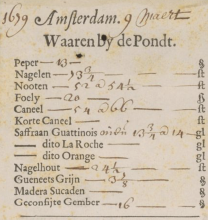 1639 Amsterdam. 9 Maert
Waaren by de Pondt.
Peper 13 ß
Nagelen 13 3/4 ß
Nooten 52 a 54 1/2 st
Foely 20 ß
Caneel 54 a 66 st
Korte Caneel st
Saffraan Guattinois 13 3/4 a 14 gl
— dito La Roche gl
— dito Orange gl
Nagelhout 24 1/2 st
Gueneets Grijn 13 1/2 ß
Madera Sucaden ß
Geconfijte Gember 16 ß